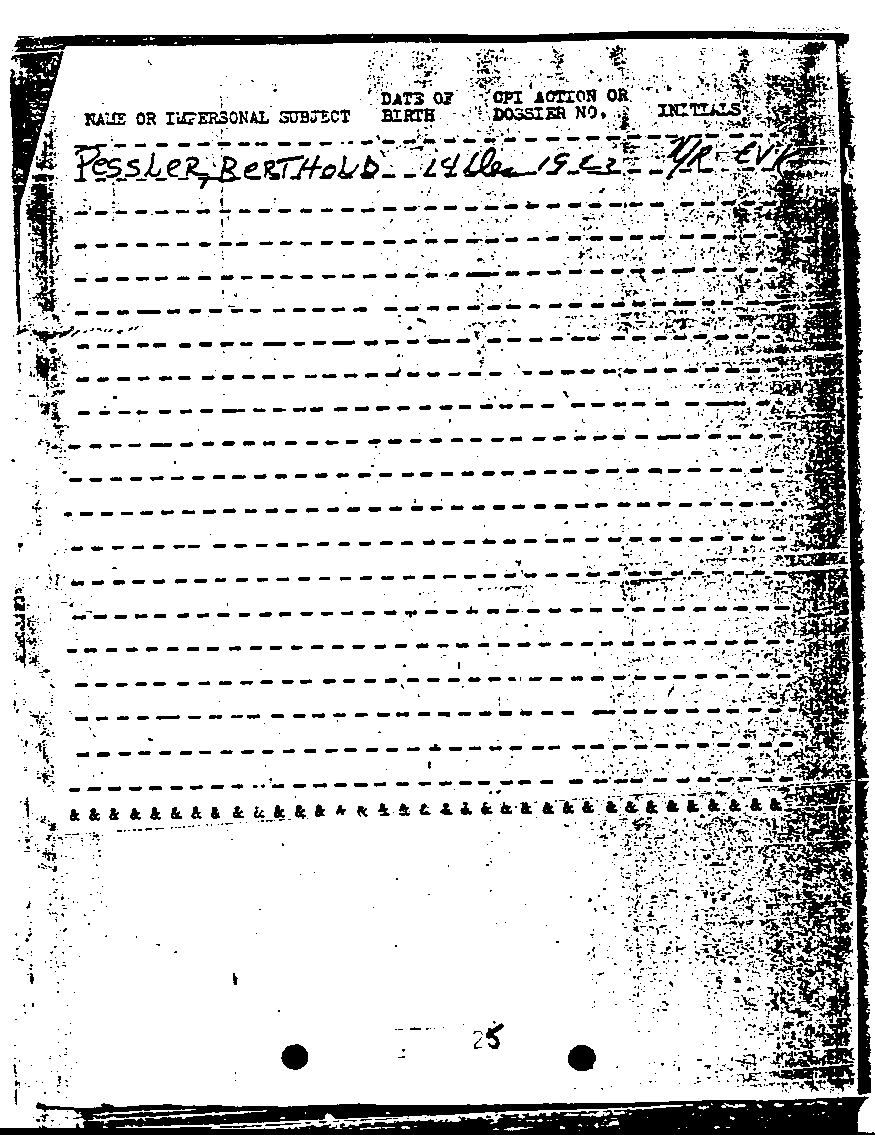 NAME OR IMPERSONAL SUBJECT DATE OF BIRTH CPI ACTION OR DOSSIER NO. INITIALS
PESSLER, BERTHOLD 14 Dec N/R EVK
& & & & & & & & & & & & & & & & & & & & & & & & & & & & & & & & & & &
25